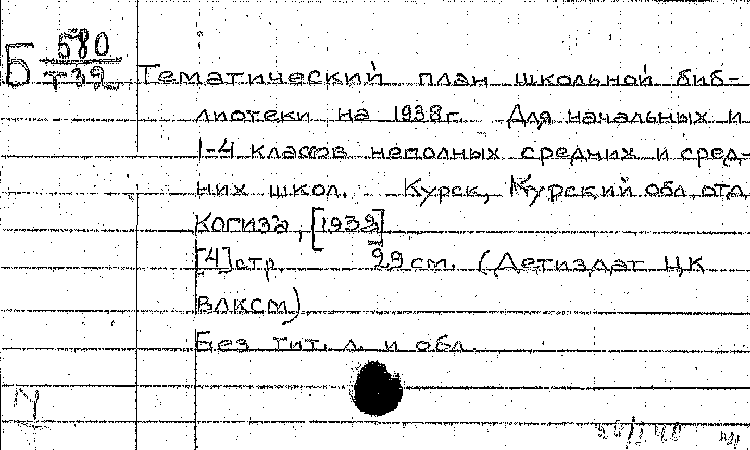 Б 580
Т-32
Тематический план школьной биб-
лиотеки на 1938г. Для начальных и
1-4 классов неполных средних и сред-
них школ. Курск, Курский обл. отд.
Когиза, [1938]
[4]стр. 29см. (Детиздат ЦК
ВЛКСМ)
Без тит. л. и обл.